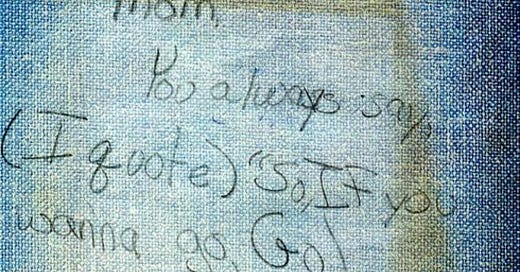 mom,
You always say,
(I quote) "So, If you
wanna go, Go!